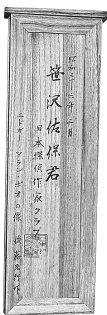 昭和三十六年二月
笹沢佐保君
日本探偵作家クラブ
エドガー・アラン・ポオ像